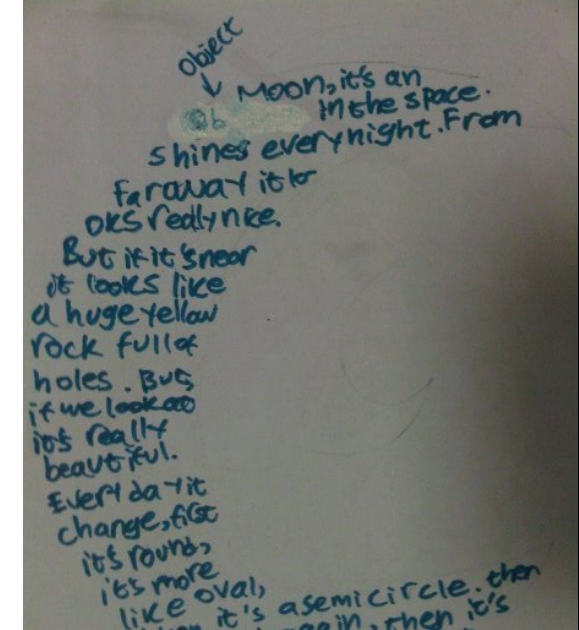 Object
Moon, it's an
in the space.
shines everynight. From
faraway it lo
oks really nice.
But if it's near
it looks like
a huge yellow
rock full of
holes. But
if we look at
it's really
beautiful.
Everyday it
change, first
it's round,
it's more
like oval,
it's a semicircle. then
again, then it's